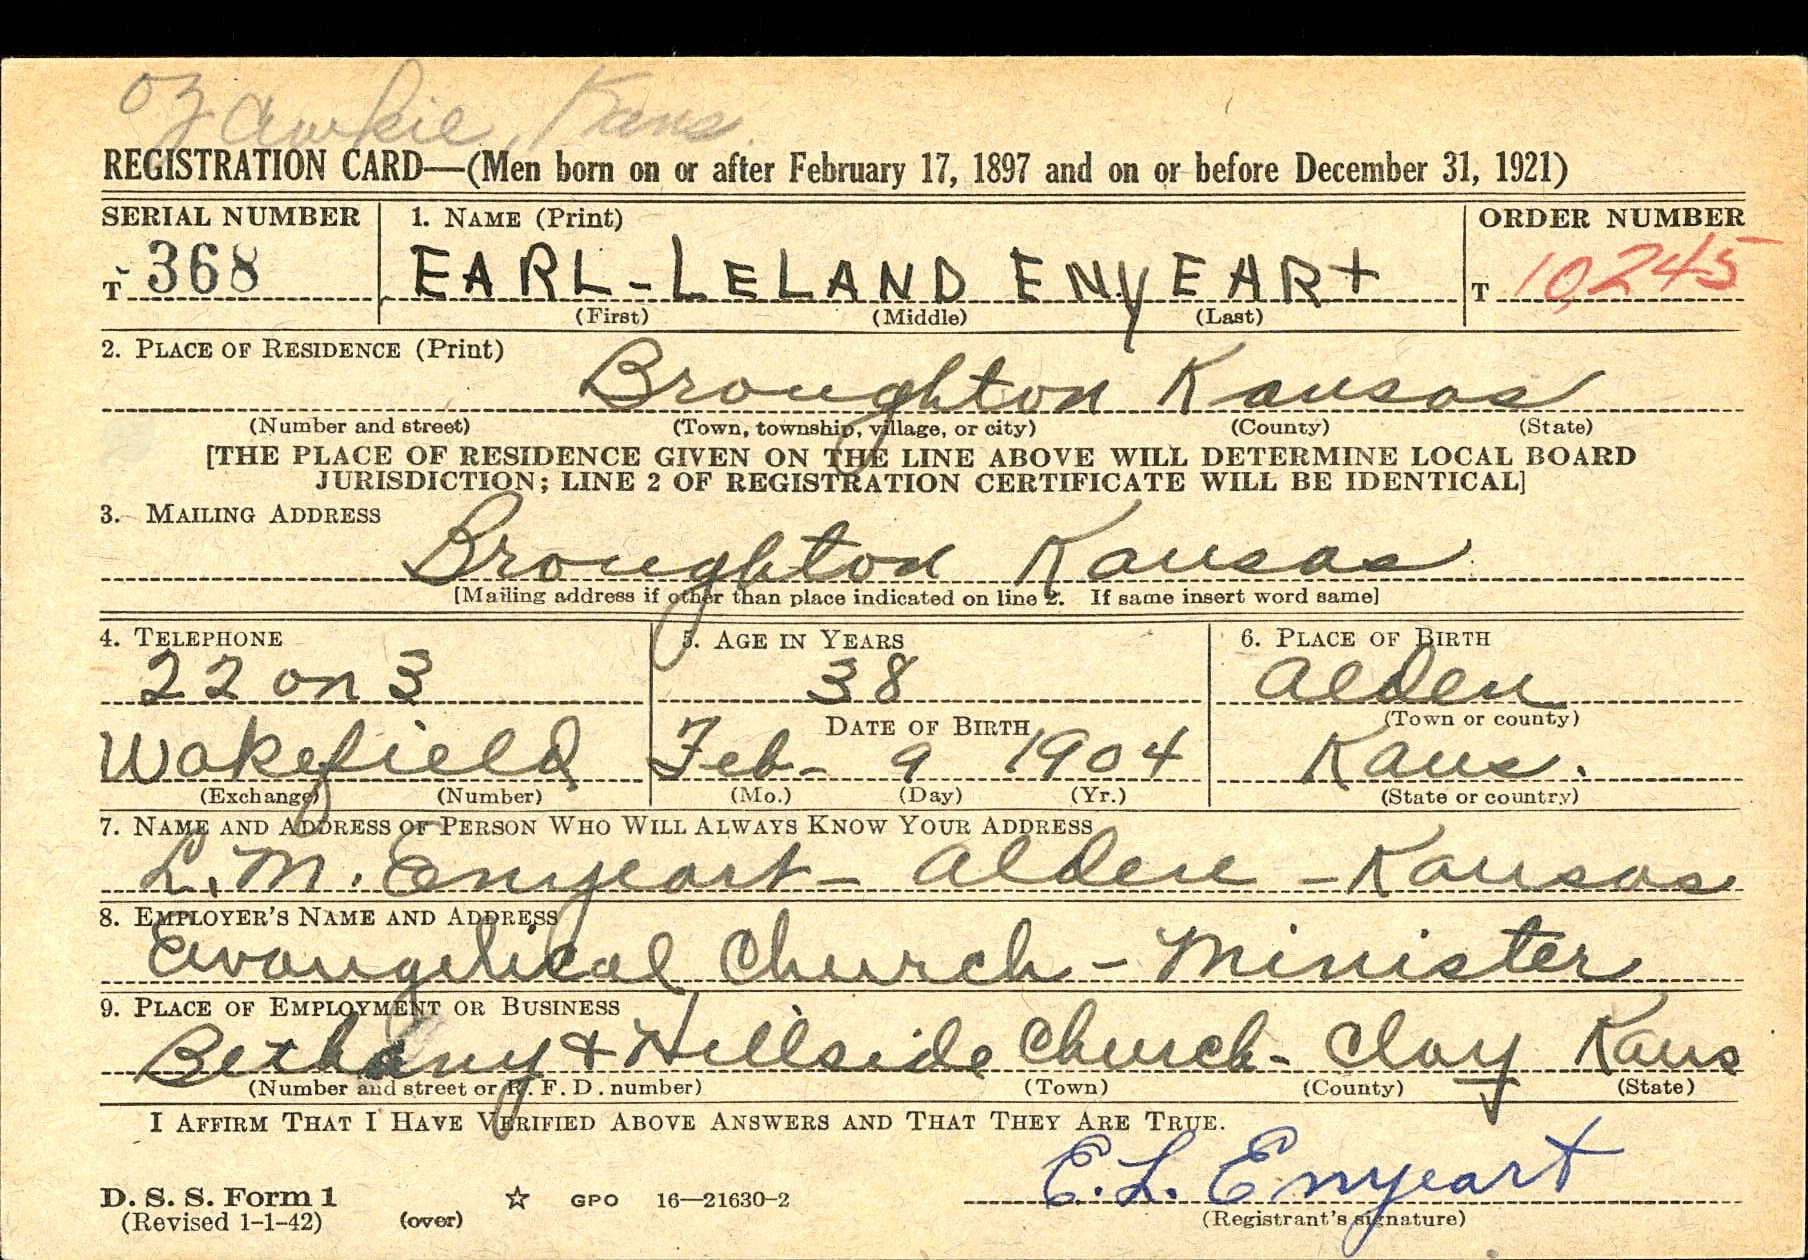 Ozawkie, Kans.
REGISTRATION CARD—(Men born on or after February 17, 1897 and on or before December 31, 1921)
SERIAL NUMBER 1. NAME (Print) ORDER NUMBER
T 368 EARL-LELAND ENYEARt T 10,245
(First) (Middle) (Last)
2. PLACE OF RESIDENCE (Print)
Broughton Kansas
(Number and street) (Town, township, village, or city) (County) (State)
[THE PLACE OF RESIDENCE GIVEN ON THE LINE ABOVE WILL DETERMINE LOCAL BOARD
JURISDICTION; LINE 2 OF REGISTRATION CERTIFICATE WILL BE IDENTICAL]
3. MAILING ADDRESS
Broughton Kansas
[Mailing address if other than place indicated on line 2. If same insert word same]
4. TELEPHONE 5. AGE IN YEARS 6. PLACE OF BIRTH
22 on 3 38 Alden
DATE OF BIRTH (Town or county)
Wakefield Feb- 9 1904 Kans.
(Exchange) (Number) (Mo.) (Day) (Yr.) (State or country)
7. NAME AND ADDRESS OF PERSON WHO WILL ALWAYS KNOW YOUR ADDRESS
L. M. Enyeart - Alden - Kansas
8. EMPLOYER'S NAME AND ADDRESS
Evangelical Church - Minister
9. PLACE OF EMPLOYMENT OR BUSINESS
Bethany + Hillside Church - Clay Kans
(Number and street or R. F. D. number) (Town) (County) (State)
I AFFIRM THAT I HAVE VERIFIED ABOVE ANSWERS AND THAT THEY ARE TRUE.
E. L. Enyeart
D. S. S. Form 1 ☆ GPO 16—21630-2
(Revised 1-1-42) (over) (Registrant's signature)